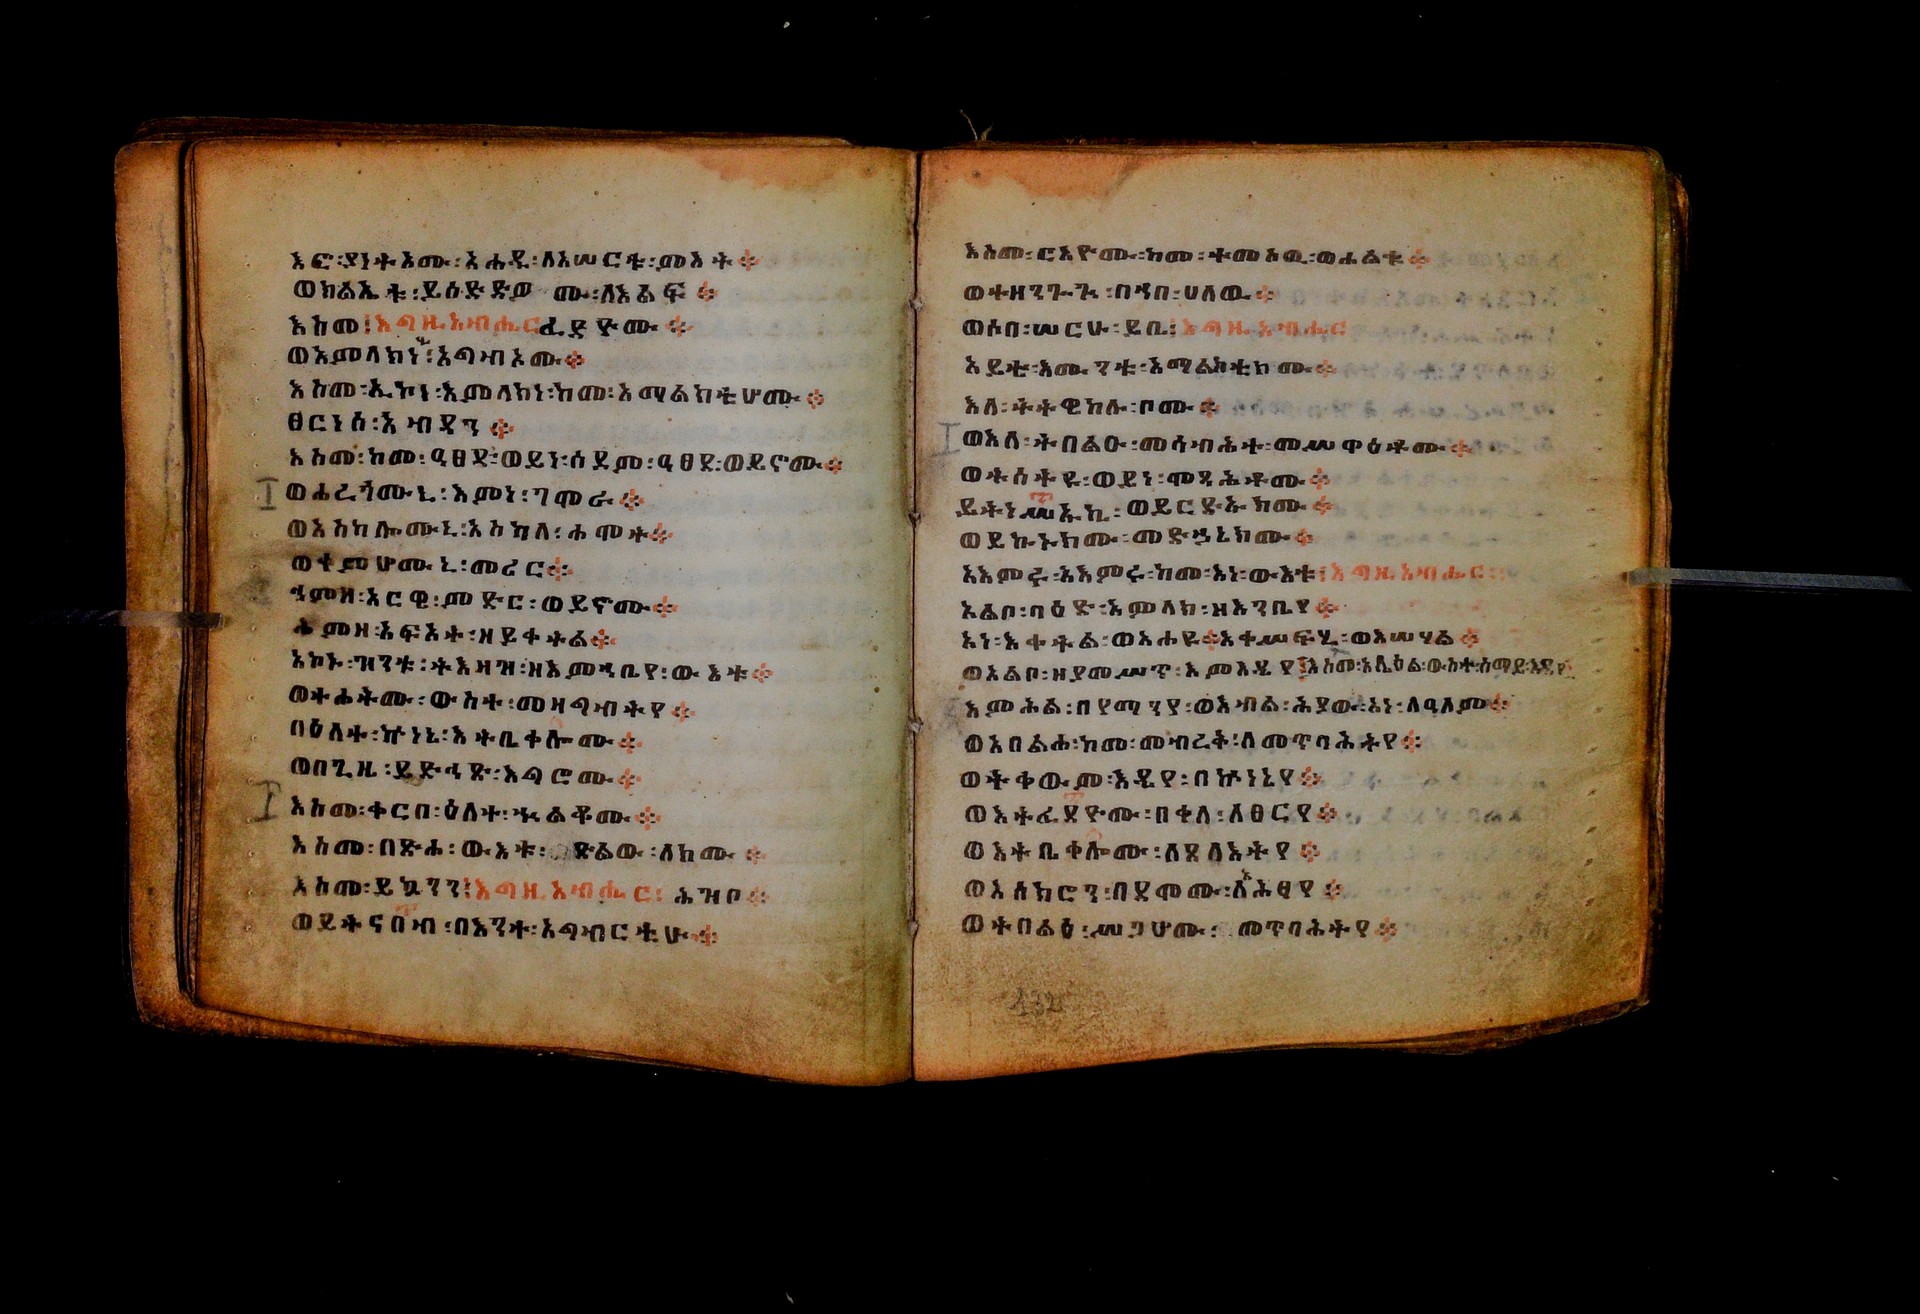 እፎ፡ያነትእሙ፡አሐዱ፡ለእሠርቱ፡መእት።
ወክልኤቱ፡ይሰድድዎሙ፡ለእልፍ።
እስመ፡እግዚአብሔር፡ፈድዮሙ።
ወአምላክነ፡አግብኦሙ።
እስመ፡ኢኮነ፡አምላክነ፡ከመ፡አማልክቲሆሙ።
ፀርነሰ፡አብዳን።
እስመ፡ከመ፡ዓፀደ፡ወይነ፡ሰዶም፡ዓፀደ፡ወይኖሙ።
ወሐረጎሙኒ፡እምነ፡ጎሞራ።
ወአስካሎሙኒ፡አስካለ፡ሐሞት።
ወቀምሆሙኒ፡መሪር።
ኅምዘ፡አርዌ፡ምድር፡ወይኖሙ።
ሕምዘ፡አፍኦት፡ዘይቀትል።
አኮኑ፡ዝንቱ፡ትእዛዝ፡ዘእምኀቤየ፡ውእቱ።
ወተሐትሙ፡ውስተ፡መዛግብትየ።
በዕለተ፡ኵነኔ፡እትቤቀሎሙ።
ወበጊዜ፡ይድኅፅ፡እግሮሙ።
እስመ፡ቀርበ፡ዕለተ፡ኁልቆሙ።
እስመ፡በጽሐ፡ውእቱ፡ጽልው፡ለክሙ።
እስመ፡ይኴንን፡እግዚአብሔር፡ሕዝቦ።
ወይትናበብ፡በእንተ፡አግብርቲሁ።
እስመ፡ርእዮሙ፡ከመ፡ተመስዉ፡ወሐልቁ።
ወተዘንጉጉ፡በኀበ፡ሀለዉ።
ወሶበ፡ሠርሁ፡ይቤ፡እግዚአብሔር
አይቴ፡እሙንቱ፡አማልክቲክሙ።
እለ፡ትትዌከሉ፡ቦሙ።
ወእለ፡ትበልዑ፡መሥብሕተ፡መሥዋዕቶሙ።
ወትሰትዩ፡ወይነ፡ሞጻሕቶሙ።
ይትነሥኡኬ፡ወይርድኡክሙ።
ወይኩኑክሙ፡መድኃኒክሙ።
አእምሩ፡አእምሩ፡ከመ፡አነ፡ውእቱ፡እግዚአብሔር፡
አልቦ፡ባዕድ፡አምላክ፡ዘእንቤየ።
አነ፡እቀትል፡ወአሐዩ።እቀሥፍሂ፡ወእሣሃል።
ወአልቦ፡ዘያመሥጥ፡እምእዴየ፡እስመ፡አሌዕል፡ውስተ፡ሰማይ፡እዴየ
እምሕል፡በየማንየ፡ወእብል፡ሕያው፡አነ፡ለዓለም።
ወአበልሕ፡ከመ፡መብረቅ፡ለመጥባሕትየ።
ወትቀውም፡እዴየ፡በኵነኔየ።
ወእትፈደዮሙ፡በቀለ፡ለፀርየ።
ወእትቤቀሎሙ፡ለጸላእትየ።
ወአሰክሮን፡በደሞሙ፡ለአሕፃየ።
ወትበልዕ፡ሥጋሆሙ፡መጥባሕትየ።
132